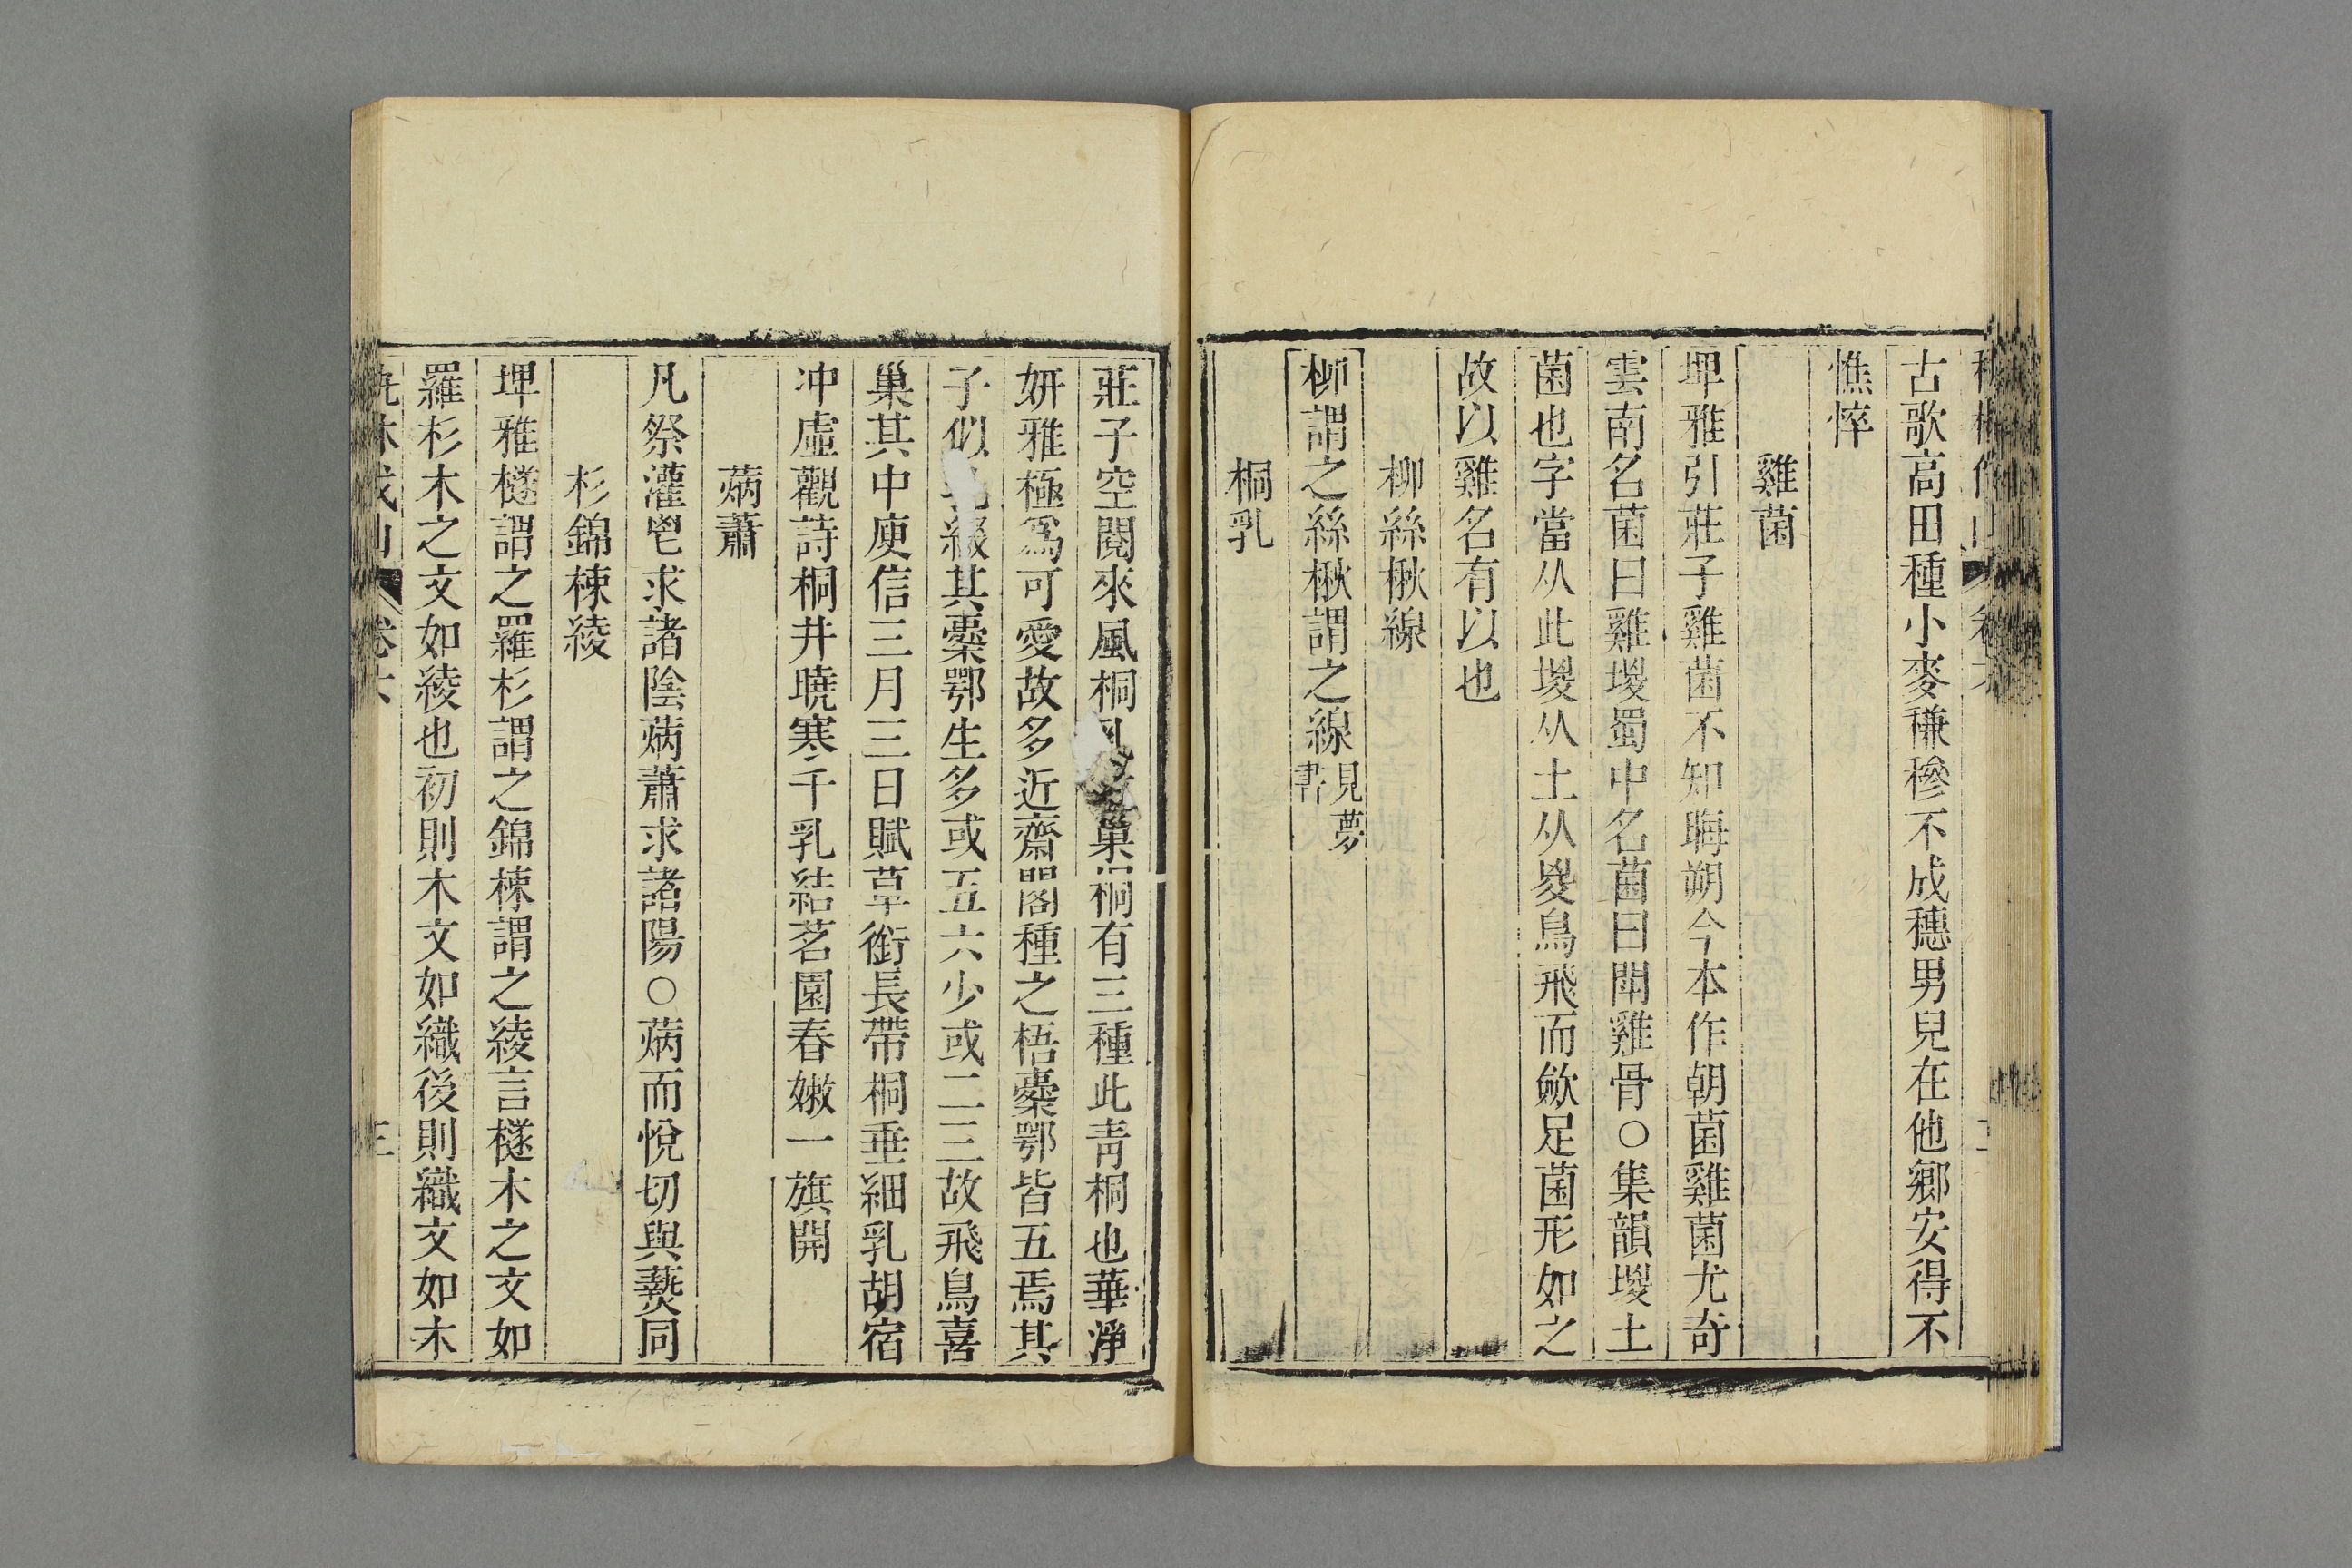 古歌高田種小麥稴穇不成穗男兒在他鄉安得不
憔悴
雞菌
埤雅引莊子雞菌不知晦朔今本作朝菌雞菌尤奇
雲南名菌曰雞㙡蜀中名菌曰鬥雞骨○集韻㙡土
菌也字當从此㙡从土从㚇鳥飛而歛足菌形如之
故以雞名有以也
柳絲楸線
柳謂之絲楸謂之線見夢
書
桐乳
莊子空閱來風桐乳致巢桐有三種此青桐也華淨
妍雅極爲可愛故多近齋閣種之梧櫜鄂皆五焉其
子似乳綴其櫜鄂生多或五六少或二三故飛鳥喜
巢其中庾信三月三日賦草銜長帶桐垂細乳胡宿
冲虛觀詩桐井曉寒千乳結茗園春嫩一旗開
焫蕭
凡祭灌鬯求諸陰焫蕭求諸陽○焫而悅切與爇同
杉錦楝綾
埤雅檖謂之羅杉謂之錦楝謂之綾言檖木之文如
羅杉木之文如綾也初則木文如織後則織文如木
卷六
三